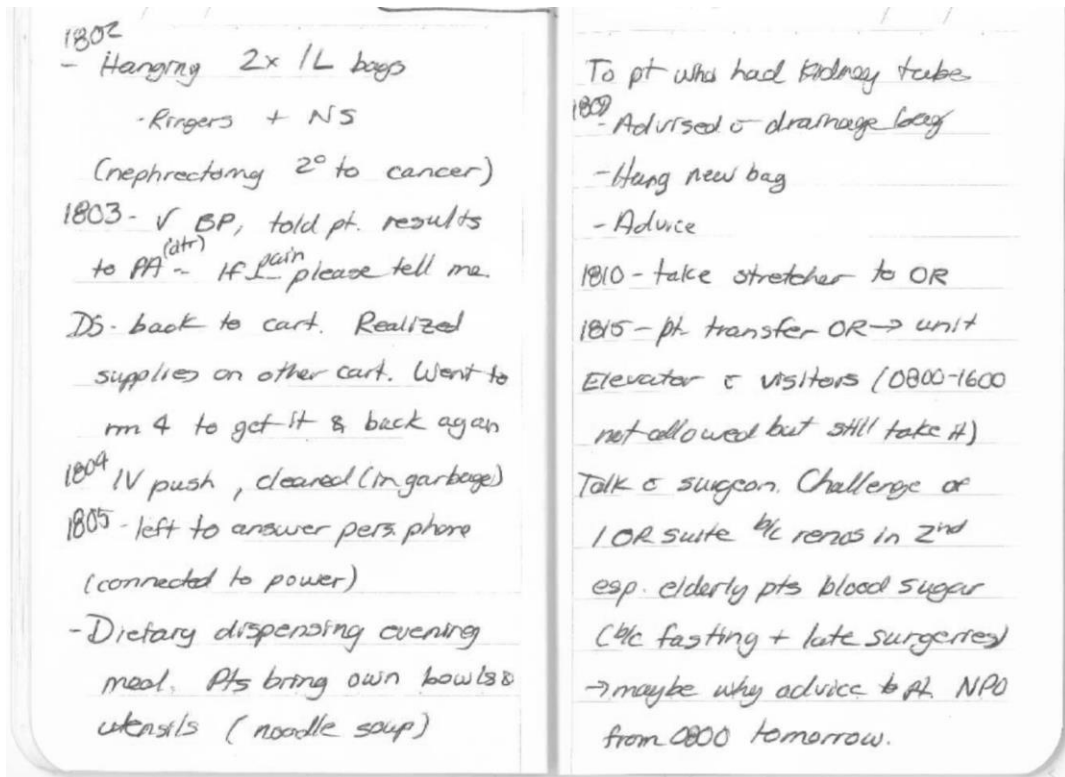 1802
- Hanging 2x 1L bags
- Ringers + NS
(nephrectomy 2° to cancer)
1803 - √ BP, told pt. results
to PA (dtr) - If ↑ pain please tell me.
DS - back to cart. Realized
supplies on other cart. Went to
rm 4 to get it & back again
1804 IV push, cleared (in garbage)
1805 - left to answer pers. phone
(connected to power)
- Dietary dispensing evening
meal. Pts bring own bowls &
utensils (noodle soup)
To pt who had kidney tube
1809 - Advised c̄ drainage bag
- Hang new bag
- Advice
1810 - take stretcher to OR
1815 - pt. transfer OR → unit
Elevator c̄ visitors (0800-1600
not allowed but still take it)
Talk c̄ surgeon. Challenge of
1 OR suite b/c renos in 2nd
esp. elderly pts blood sugar
(b/c fasting + late surgeries)
→ maybe why advice to pt. NPO
from 0800 tomorrow.